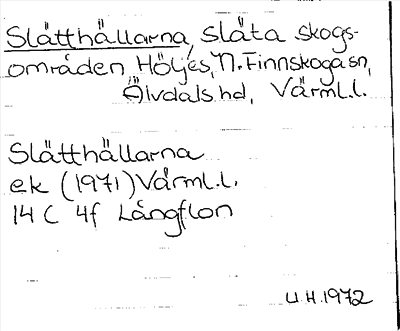 Slätthällarna, släta skogs-
områden Höljes, N. Finnskoga sn,
Älvdals hd, Värml.l.
Slätthällarna
ek (1971) Värml.l.
14 C 4f Långflon
U.H. 1972